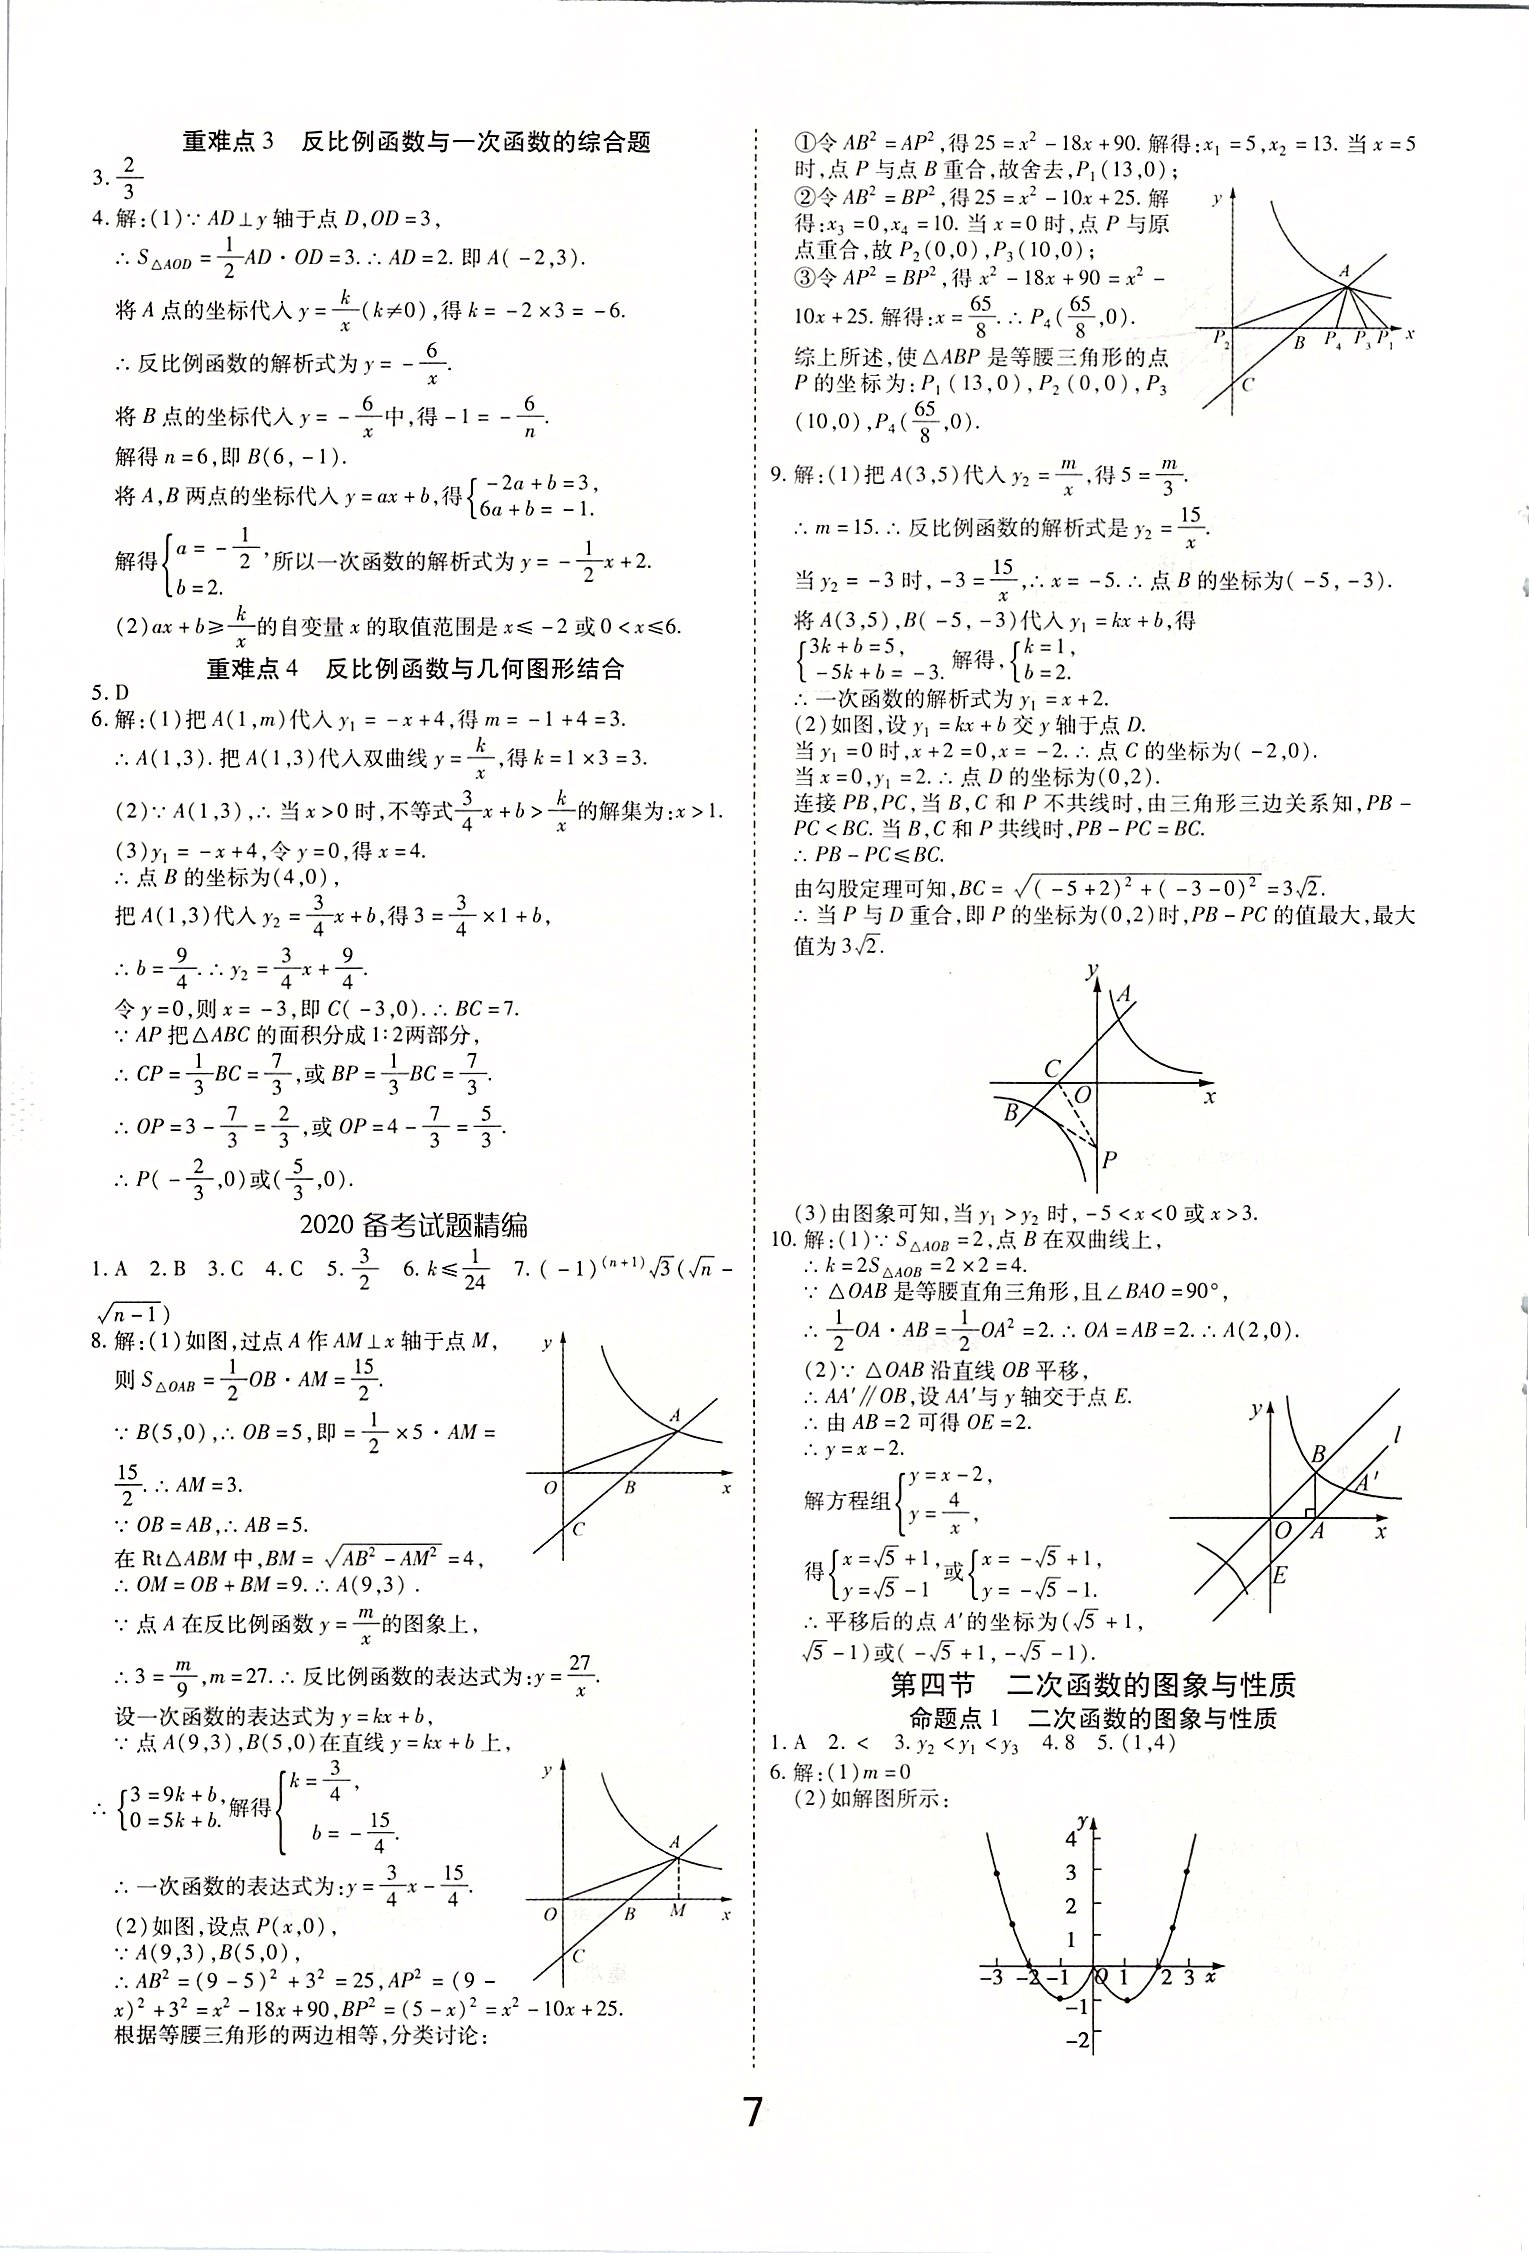 重难点3　反比例函数与一次函数的综合题
3. 2/3
4.解:(1)∵AD⊥y轴于点D,OD=3,
∴S△AOD=1/2AD·OD=3.∴AD=2.即A(-2,3).
将A点的坐标代入y=k/x(k≠0),得k=-2×3=-6.
∴反比例函数的解析式为y=-6/x.
将B点的坐标代入y=-6/x中,得-1=-6/n.
解得n=6,即B(6,-1).
将A,B两点的坐标代入y=ax+b,得{-2a+b=3, 6a+b=-1.
解得{a=-1/2, b=2. 所以一次函数的解析式为y=-1/2x+2.
(2)ax+b≥k/x的自变量x的取值范围是x≤-2或0<x≤6.
重难点4　反比例函数与几何图形结合
5.D
6.解:(1)把A(1,m)代入y₁=-x+4,得m=-1+4=3.
∴A(1,3).把A(1,3)代入双曲线y=k/x,得k=1×3=3.
(2)∵A(1,3),∴当x>0时,不等式3/4x+b>k/x的解集为:x>1.
(3)y₁=-x+4,令y=0,得x=4.
∴点B的坐标为(4,0),
把A(1,3)代入y₂=3/4x+b,得3=3/4×1+b,
∴b=9/4.∴y₂=3/4x+9/4.
令y=0,则x=-3,即C(-3,0).∴BC=7.
∵AP把△ABC的面积分成1∶2两部分,
∴CP=1/3BC=7/3,或BP=1/3BC=7/3.
∴OP=3-7/3=2/3,或OP=4-7/3=5/3.
∴P(-2/3,0)或(5/3,0).
2020备考试题精编
1.A　2.B　3.C　4.C　5.3/2　6.k≤1/24　7.(-1)⁽ⁿ⁺¹⁾√3(√n-
√(n-1))
8.解:(1)如图,过点A作AM⊥x轴于点M,
则S△OAB=1/2OB·AM=15/2.
∵B(5,0),∴OB=5,即=1/2×5·AM=
15/2.∴AM=3.
∵OB=AB,∴AB=5.
在Rt△ABM中,BM=√(AB²-AM²)=4,
∴OM=OB+BM=9.∴A(9,3).
∵点A在反比例函数y=m/x的图象上,
∴3=m/9,m=27.∴反比例函数的表达式为:y=27/x.
设一次函数的表达式为y=kx+b,
∵点A(9,3),B(5,0)在直线y=kx+b上,
∴{3=9k+b, 0=5k+b. 解得{k=3/4, b=-15/4.
∴一次函数的表达式为:y=3/4x-15/4.
(2)如图,设点P(x,0),
∵A(9,3),B(5,0),
∴AB²=(9-5)²+3²=25,AP²=(9-
x)²+3²=x²-18x+90,BP²=(5-x)²=x²-10x+25.
根据等腰三角形的两边相等,分类讨论:
y
A
O B x
C
y
A
O B M x
C
①令AB²=AP²,得25=x²-18x+90.解得:x₁=5,x₂=13.当x=5
时,点P与点B重合,故舍去,P₁(13,0);
②令AB²=BP²,得25=x²-10x+25.解
得:x₃=0,x₄=10.当x=0时,点P与原
点重合,故P₂(0,0),P₃(10,0);
③令AP²=BP²,得x²-18x+90=x²-
10x+25.解得:x=65/8.∴P₄(65/8,0).
综上所述,使△ABP是等腰三角形的点
P的坐标为:P₁(13,0),P₂(0,0),P₃
(10,0),P₄(65/8,0).
y
A
P₂ B P₄ P₃ P₁ x
C
9.解:(1)把A(3,5)代入y₂=m/x,得5=m/3.
∴m=15.∴反比例函数的解析式是y₂=15/x.
当y₂=-3时,-3=15/x,∴x=-5.∴点B的坐标为(-5,-3).
将A(3,5),B(-5,-3)代入y₁=kx+b,得
{3k+b=5, -5k+b=-3. 解得,{k=1, b=2.
∴一次函数的解析式为y₁=x+2.
(2)如图,设y₁=kx+b交y轴于点D.
当y₁=0时,x+2=0,x=-2.∴点C的坐标为(-2,0).
当x=0,y₁=2.∴点D的坐标为(0,2).
连接PB,PC,当B,C和P不共线时,由三角形三边关系知,PB-
PC<BC.当B,C和P共线时,PB-PC=BC.
∴PB-PC≤BC.
由勾股定理可知,BC=√((-5+2)²+(-3-0)²)=3√2.
∴当P与D重合,即P的坐标为(0,2)时,PB-PC的值最大,最大
值为3√2.
y
A
C
O x
B
P
(3)由图象可知,当y₁>y₂时,-5<x<0或x>3.
10.解:(1)∵S△AOB=2,点B在双曲线上,
∴k=2S△AOB=2×2=4.
∵△OAB是等腰直角三角形,且∠BAO=90°,
∴1/2OA·AB=1/2OA²=2.∴OA=AB=2.∴A(2,0).
(2)∵△OAB沿直线OB平移,
∴AA′∥OB,设AA′与y轴交于点E.
∴由AB=2可得OE=2.
∴y=x-2.
解方程组{y=x-2, y=4/x,
得{x=√5+1, y=√5-1 或{x=-√5+1, y=-√5-1.
∴平移后的点A′的坐标为(√5+1,
√5-1)或(-√5+1,-√5-1).
y
l
B
A′
O A x
E
第四节　二次函数的图象与性质
命题点1　二次函数的图象与性质
1.A　2.<　3.y₂<y₁<y₃　4.8　5.(1,4)
6.解:(1)m=0
(2)如解图所示:
y
4
3
2
1
-3 -2 -1 O 1 2 3 x
-1
-2
7